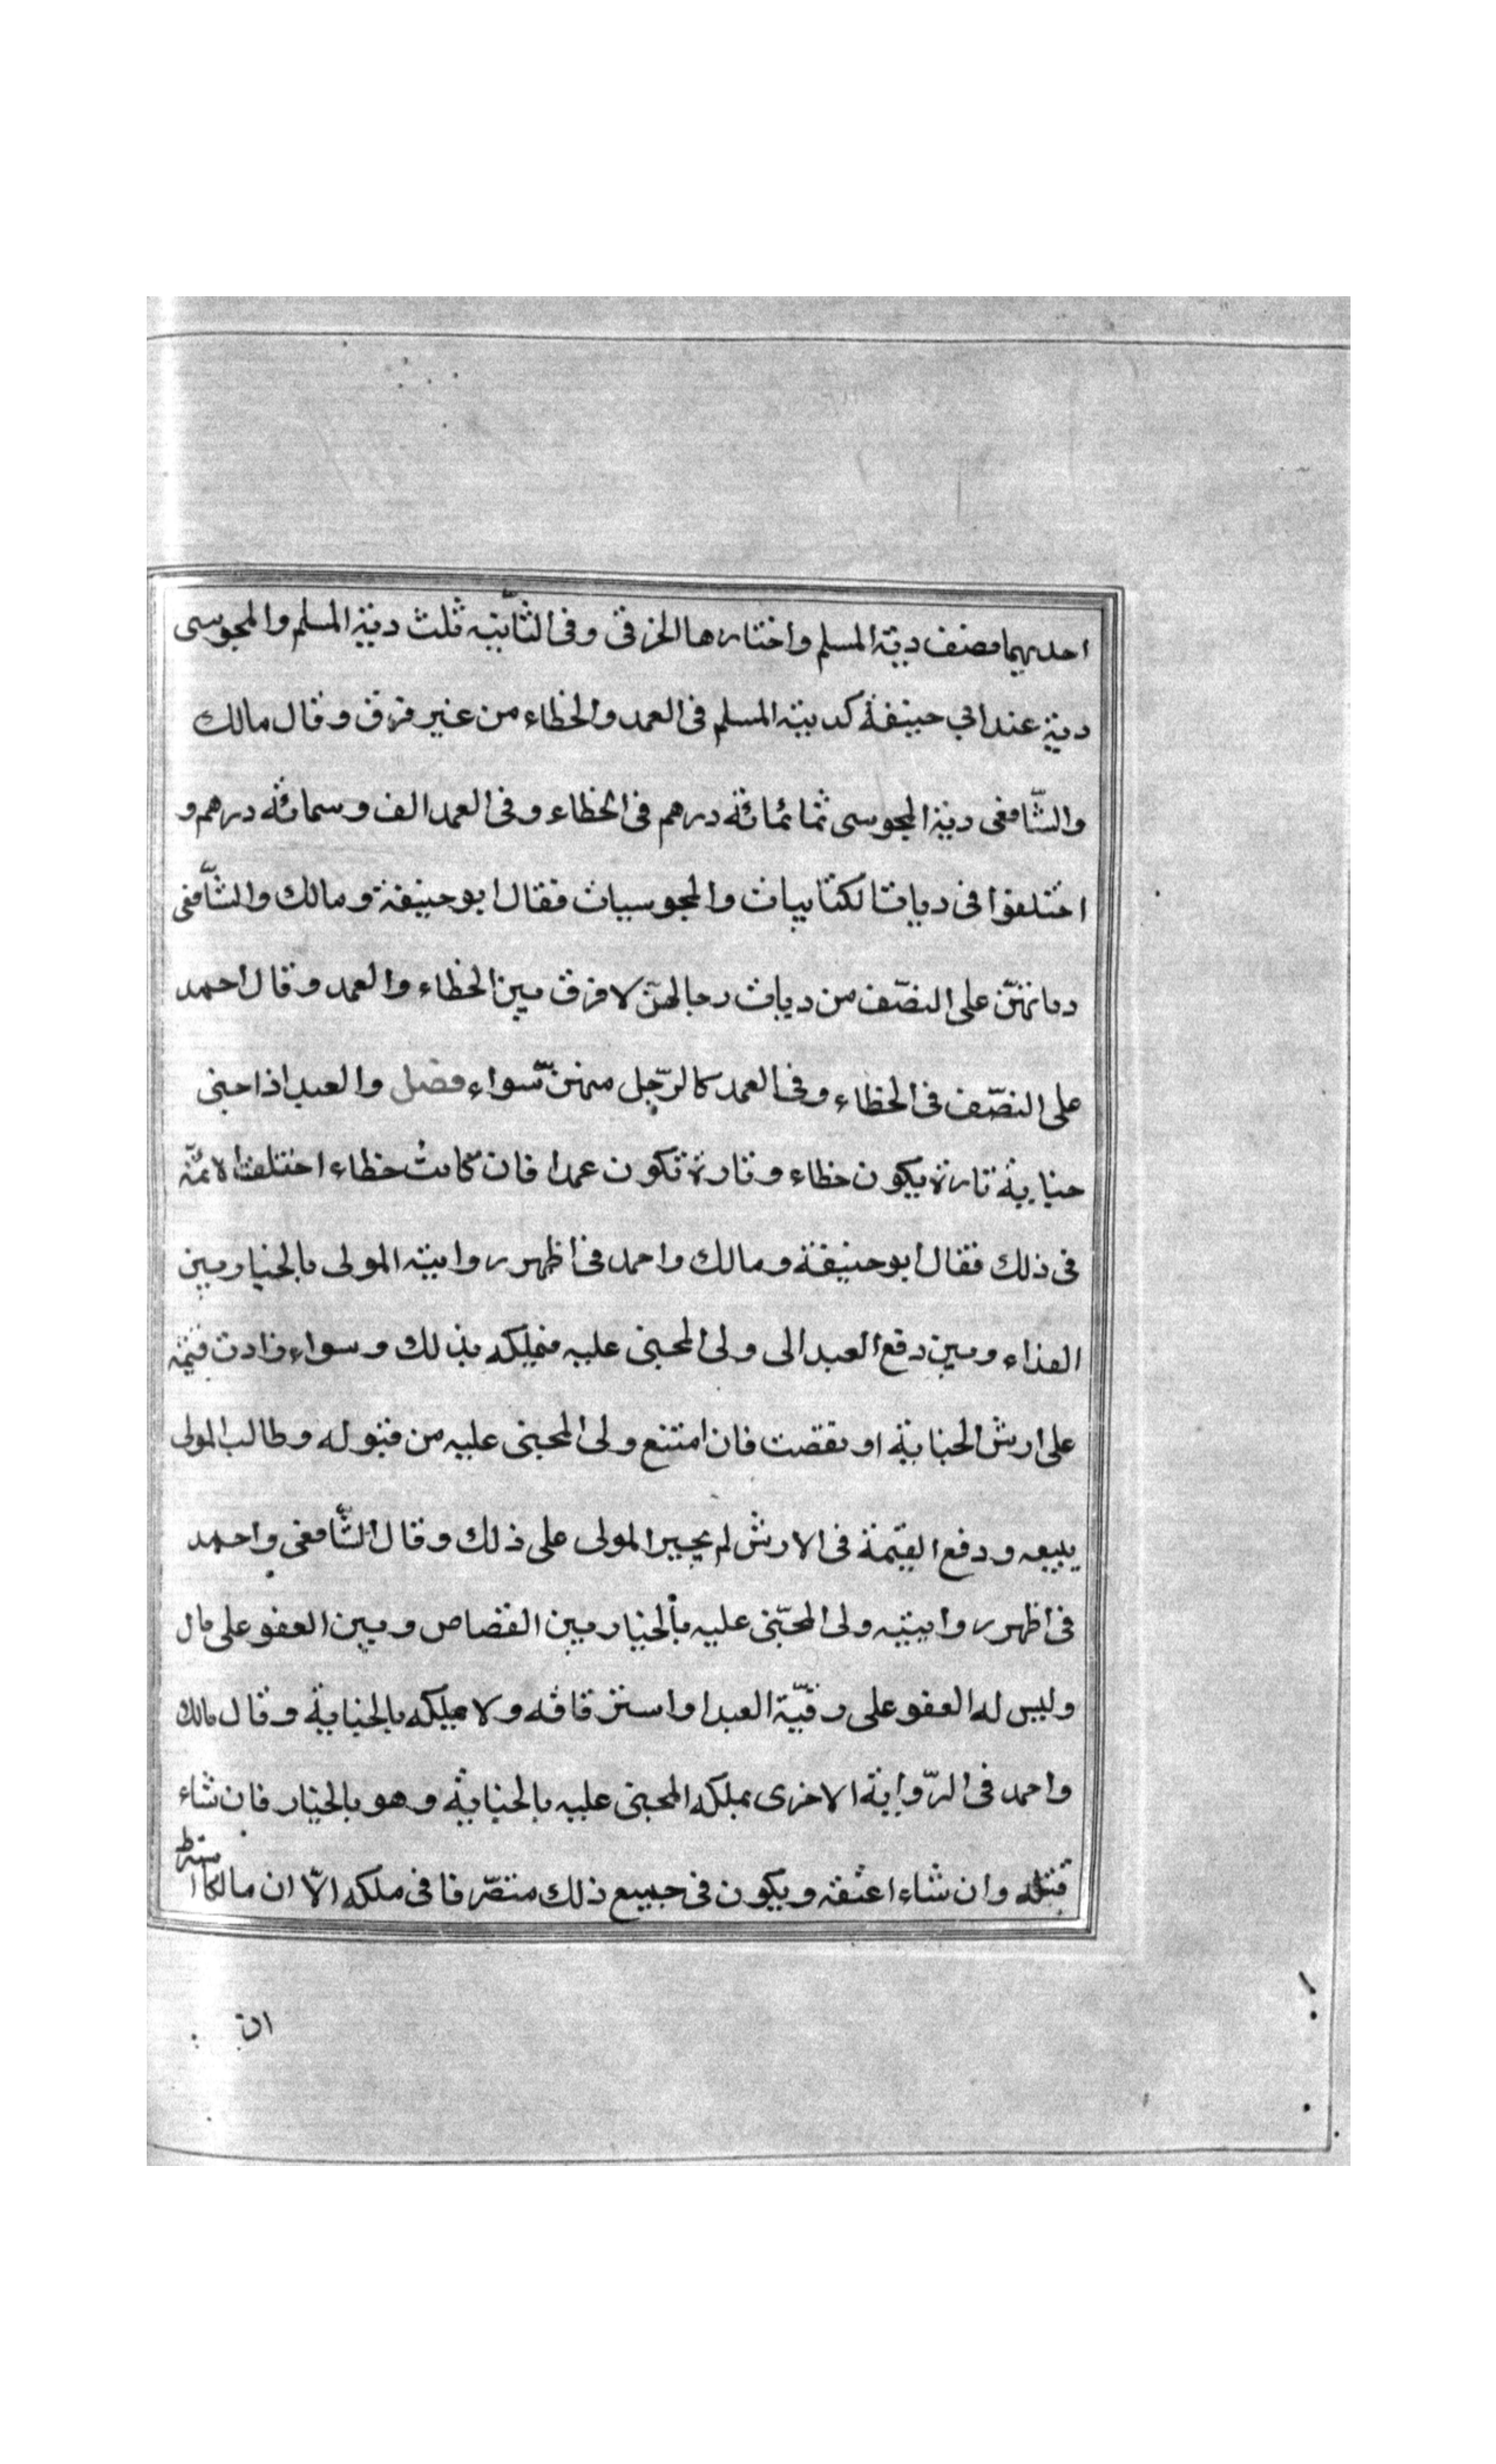 احديهما نصف دية المسلم واختارها الخرقى وفى الثّانية ثلث دية المسلم والمجوسى
دية عند ابي حنيفة كدية المسلم فى العمد والخطاء من غير فرق وقال مالك
والشّافعى دية المجوسى ثمانمائة درهم فى الخطاء وفى العمد الف وسمائة درهم و
اختلفوا فى ديات الكتابيات والمجوسيات فقال ابو حنيفة ومالك والشّافعى
دياتهنّ على النصّف من ديات رجالهنّ لا فرق بين الخطاء والعمد وقال احمد
على النصّف فى الخطاء وفى العمد كالرّجل منهنّ سواء فصل والعبد اذا جنى
جناية تارة يكون خطاء وتارة تكون عمدا فان كانت خطاء اختلف الائمّة
فى ذلك فقال ابو حنيفة ومالك واحمد فى اظهر رواية المولى بالخيار بين
الفداء وبين دفع العبد الى ولى المجنى عليه فيملكه بذلك وسواء زادت قيمته
على ارش الجناية او نقصت فان امتنع ولى المجنى عليه من قبوله وطالب المولى
ببيعه ودفع القيمة فى الارش لم يجبر المولى على ذلك وقال الشّافعى واحمد
فى اظهر روايتيه ولى المجنى عليه بالخيار بين القصاص وبين العفو على مال
وليس له العفو على رقبّة العبد او استرقاقه ولا ميلكه بالجناية وقال مالك
واحمد فى الرّواية الاخرى يملكه المجنى عليه بالجناية وهو بالخيار فان شاء
قتله وان شاء اعتقه ويكون فى جميع ذلك متصّرفا فى ملكه الاّ ان مالكا اشترط
ان